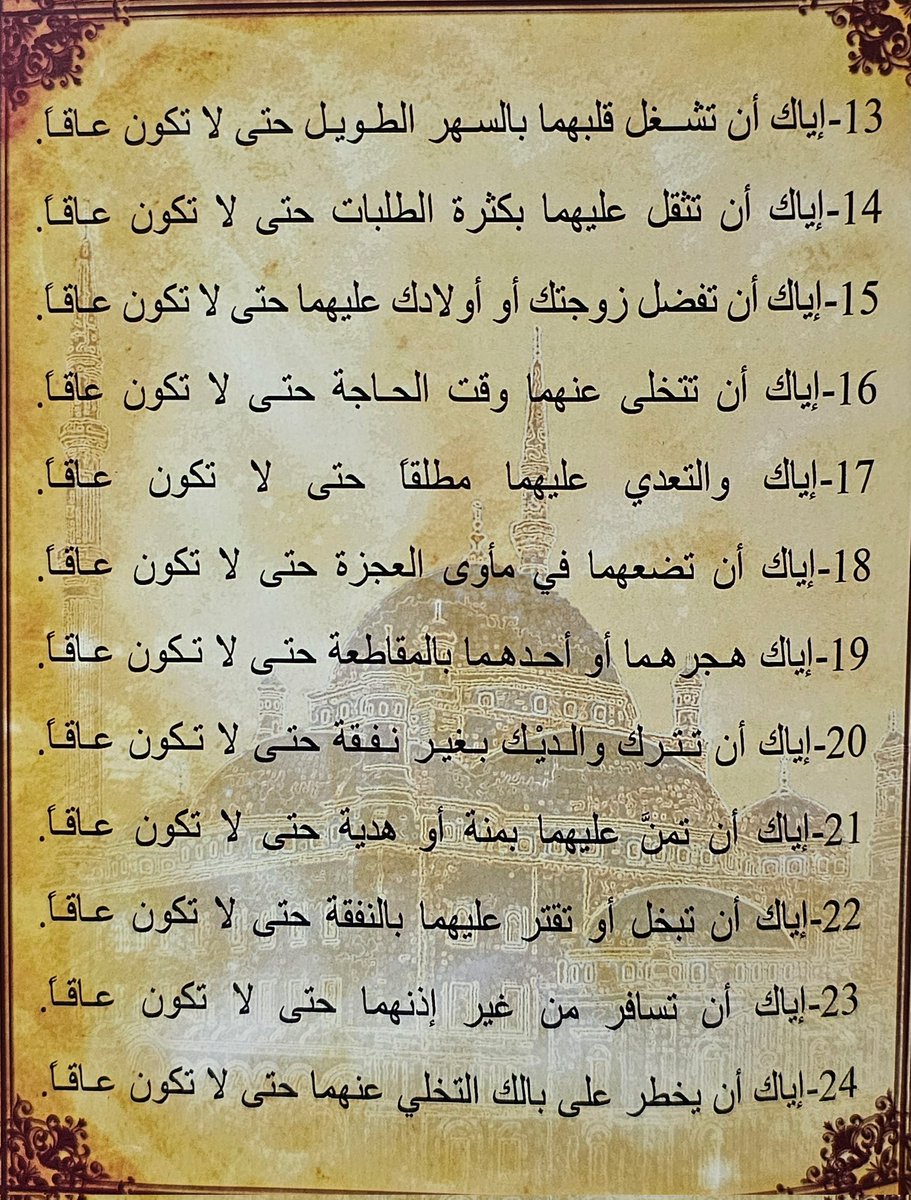 13-إياك أن تشـــغل قلبهما بالسـهر الطـويـل حتى لا تكون عـاقـاً.
14-إياك أن تثقل عليهما بكثرة الطلبات حتى لا تكون عـاقـاً.
15-إياك أن تفضل زوجتك أو أولادك عليهما حتى لا تكون عـاقـاً.
16-إياك أن تتخلى عنهما وقت الحـاجة حتـى لا تكون عاقـاً.
17-إياك والتعدي عليهما مطلقاً حتى لا تكون عـاقـاً.
18-إياك أن تضعهما في مأوى العجزة حتى لا تكون عـاقـاً.
19-إياك هـجرهـما أو أحـدهـما بالمقاطعة حتـى لا تـكون عـاقـاً.
20-إياك أن تـتـرك والـديْـك بـغيـر نـفـقة حتـى لا تـكون عـاقـاً.
21-إياك أن تمنَّ عليهما بمنة أو هدية حتى لا تكون عـاقـاً.
22-إياك أن تبخل أو تقتر عليهما بالنفقة حتى لا تكون عـاقـاً.
23-إياك أن تسافر من غير إذنهما حتى لا تكون عـاقـاً.
24-إياك أن يخطر على بالك التخلي عنهما حتى لا تكون عـاقـاً.